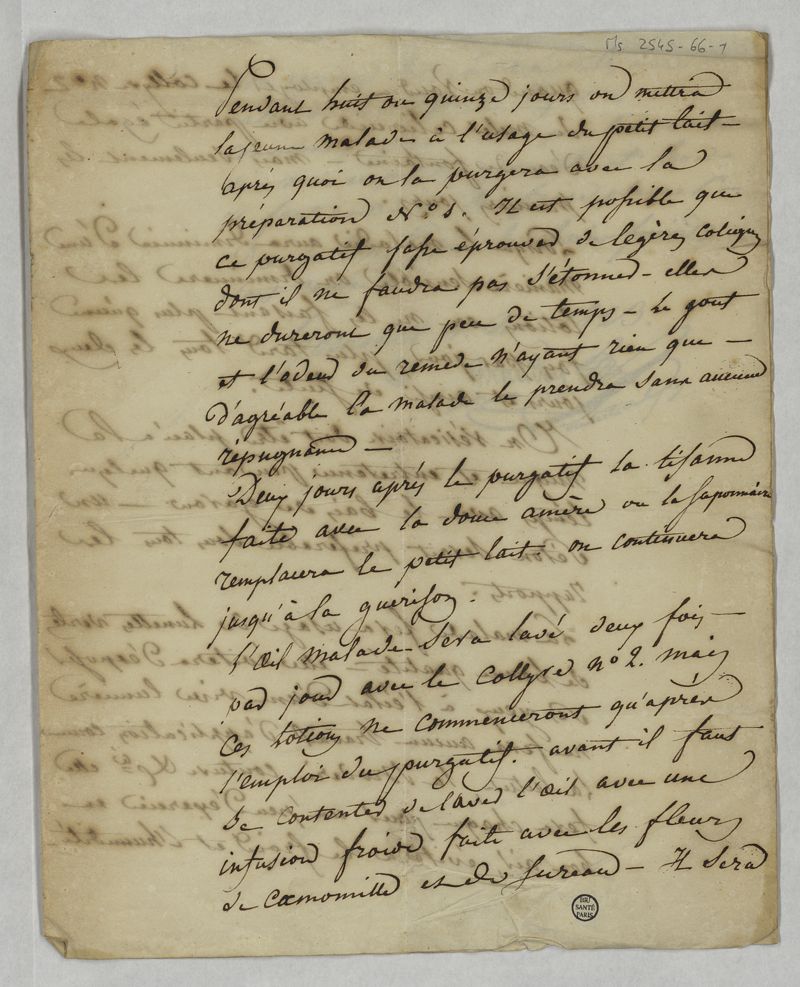 Ms 2545-66-1
Pendant huit ou quinze jours on mettra
la jeune malade à l'usage du petit lait
après quoi on la purgera avec la
préparation N° 1. Il est possible que
ce purgatif fasse éprouver de legères coliques
dont il ne faudra pas s'étonner - elles
ne dureront que peu de temps - Le gout
et l'odeur du remede n'ayant rien que -
d'agréable la malade le prendra sans aucune
répugnance -
Deux jours après le purgatif la tisanne
faite avec la douce amère ou la saponnaire
remplacera le petit lait. on continuera
jusqu'à la guerison.
l'œil malade sera lavé deux fois -
par jour avec le Collyre n° 2. mais
ces lotions ne commenceront qu'après
l'emploi du purgatif. avant il faut
se contenter de laver l'œil avec une
infusion froide faite avec les fleurs
de camomille et de sureau - Il sera
BIU
SANTÉ
PARIS